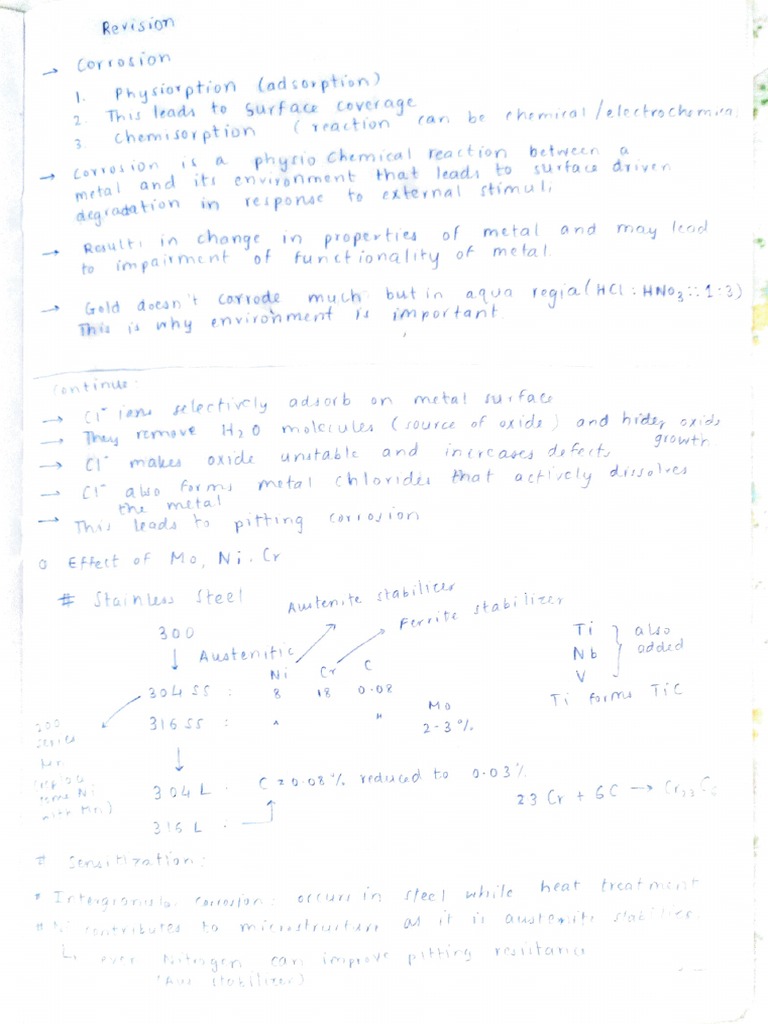 Revision
→ Corrosion
1. Physiorption (adsorption)
2. This leads to surface coverage
3. Chemisorption (reaction can be chemical/electrochemical
→ Corrosion is a physio chemical reaction between a
metal and its environment that leads to surface driven
degradation in response to external stimuli
→ Results in change in properties of metal and may lead
to impairment of functionality of metal.
→ Gold doesn't corrode much but in aqua regia (HCl : HNO₃ :: 1:3)
This is why environment is important.
Continue:
→ Cl⁻ ions selectively adsorb on metal surface
→ They remove H₂O molecules (source of oxide) and hides oxide
growth.
→ Cl⁻ makes oxide unstable and increases defects
→ Cl⁻ also forms metal chlorides that actively dissolves
the metal
→ This leads to pitting corrosion
o Effect of Mo, Ni, Cr
# Stainless Steel
Austenite stabilizer
Ferrite stabilizer
300
↓ Austenitic
Ni Cr C
304 SS : 8 18 0.08
Mo
316 SS : " " 2-3%
Ti
Nb
V
} also
added
Ti forms TiC
200
series
Mn
some Ni
with Mn)
↓
304 L : C = 0.08% reduced to 0.03%
316 L :
23 Cr + 6C → Cr₂₃C₆
# Sensitization:
* Intergranular corrosion: occurs in steel while heat treatment
# Ni contributes to microstructure as it is austenite stabilizer.
↳ even Nitrogen can improve pitting resistance
(Aus stabilizer)